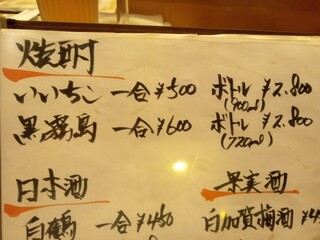 焼酎
いいちこ 一合 ¥500 ボトル ¥2.800
(900ml)
黒霧島 一合 ¥600 ボトル ¥2.800
(720ml)
日本酒 果実酒
白鶴 一合 ¥450 白加賀梅酒